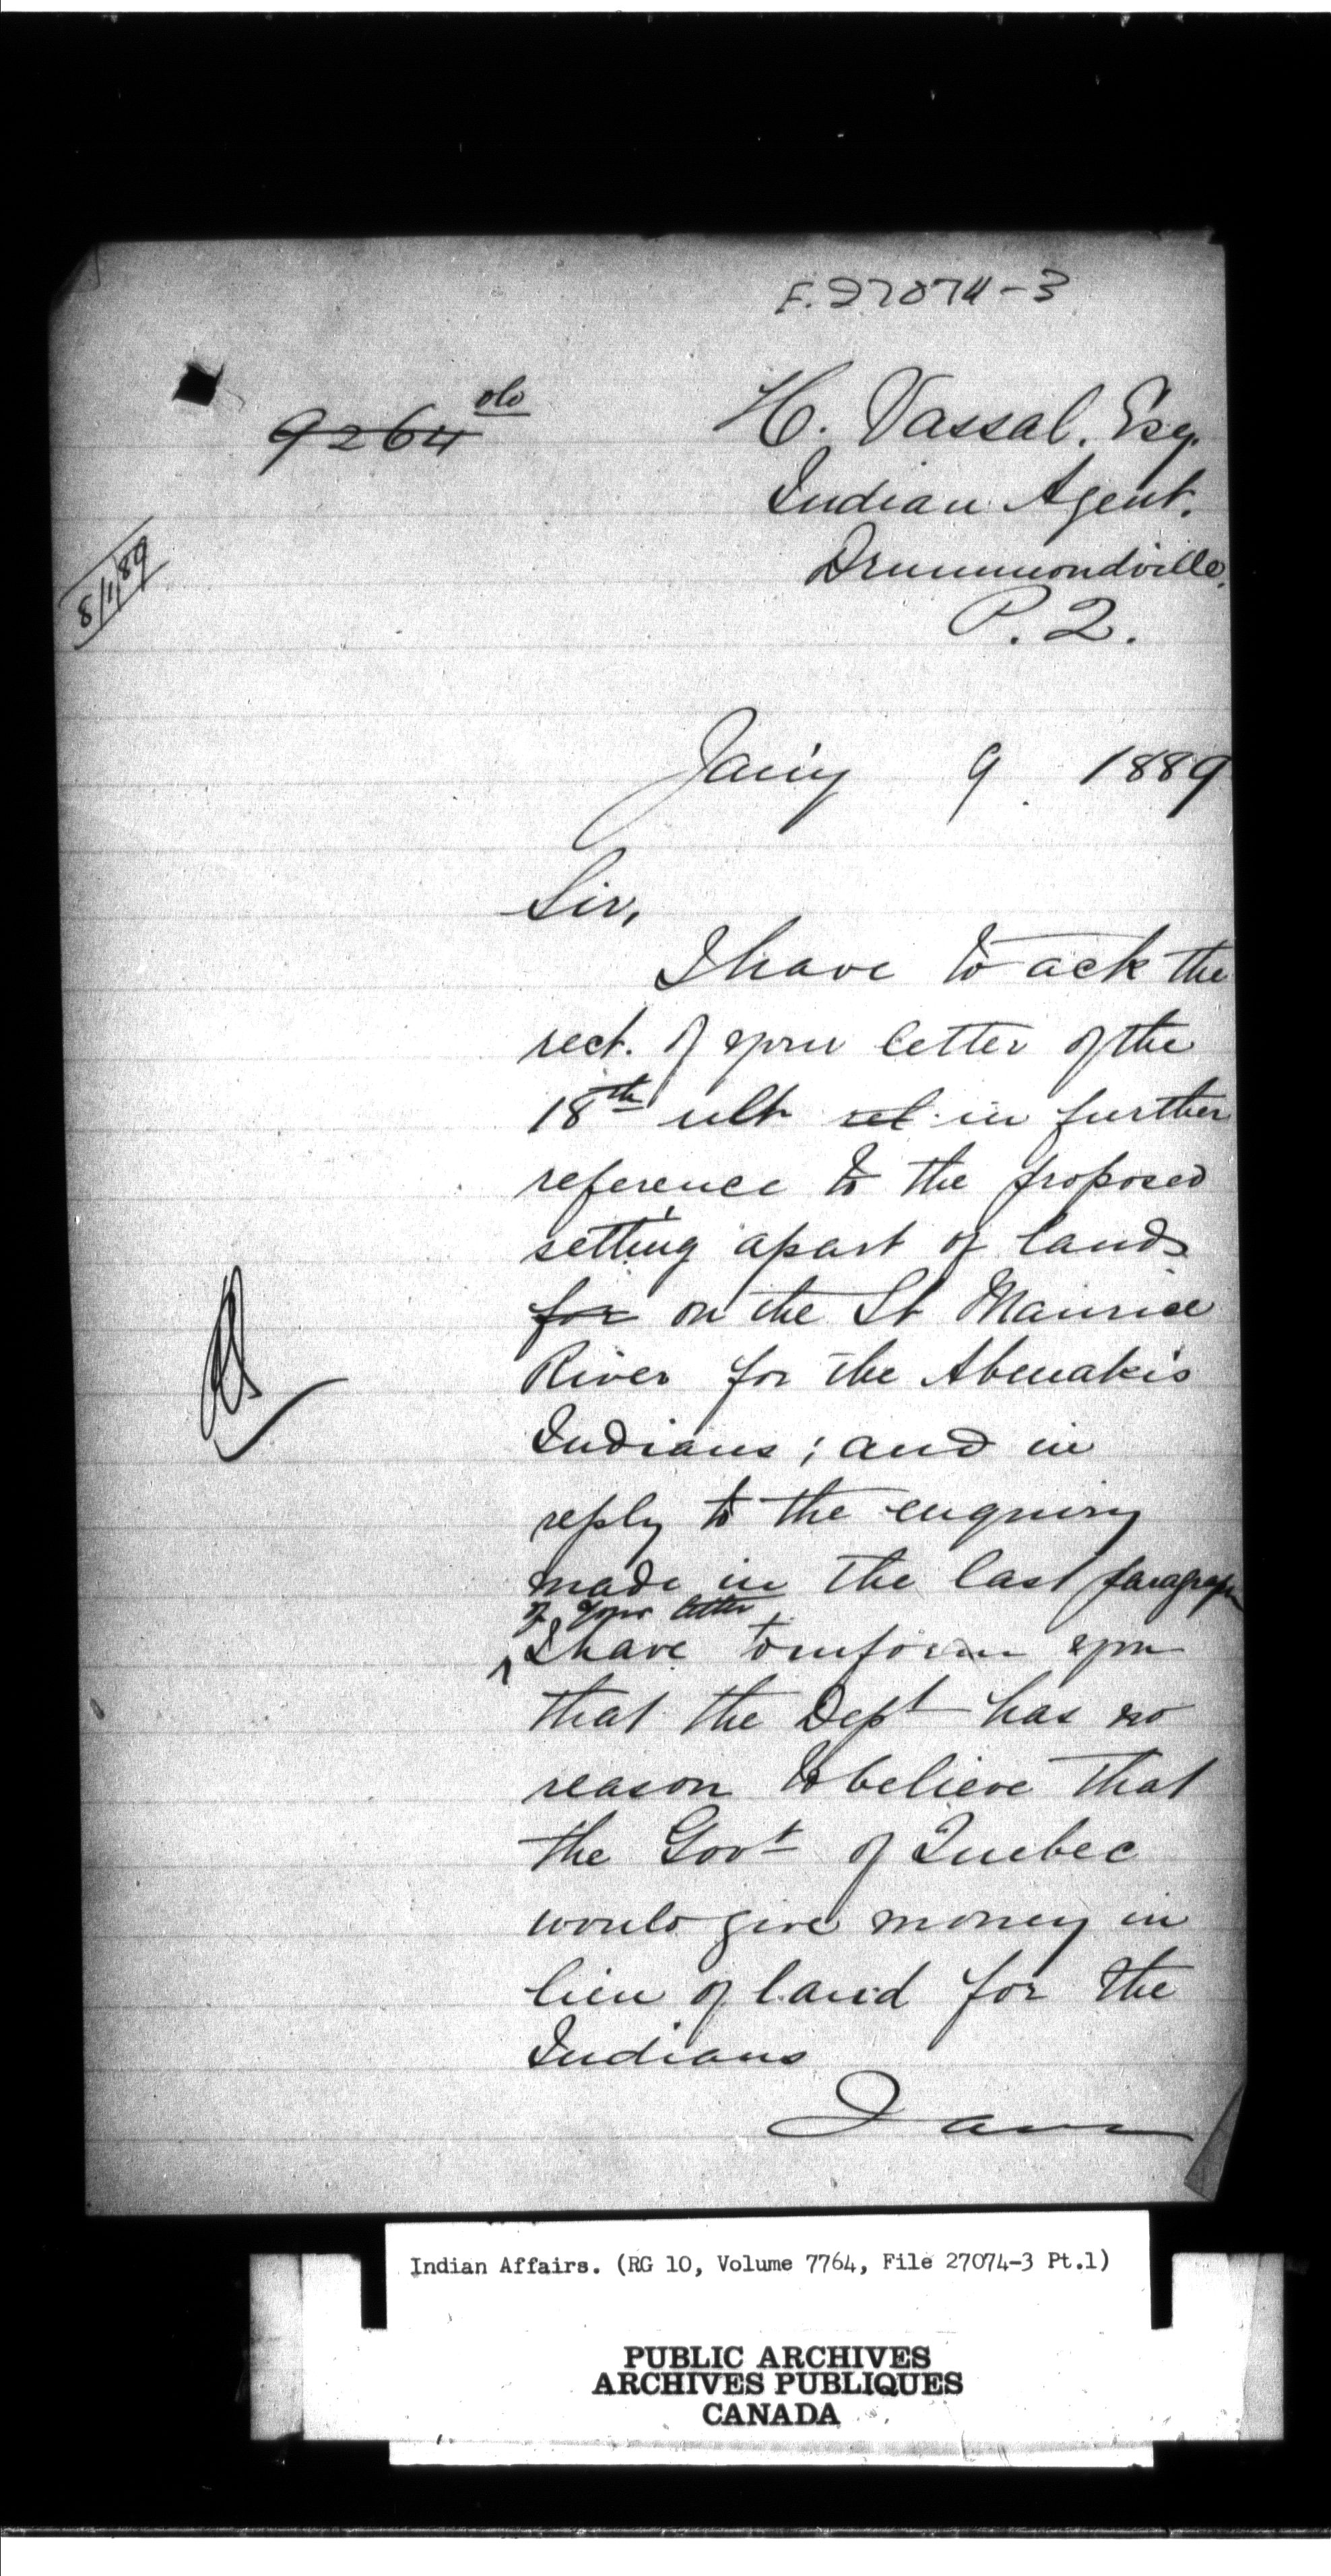 F. 27074-3
9264 olo
H. Vassal. Esq.
Indian Agent.
Drummondville,
P. Q.
8/1/89
Jan'y 9 1889
Sir,
I have to ack the
rect. of your letter of the
18th ult rel. in further
reference to the proposed
setting apart of lands
for on the St Maurice
River for the Abenakis
Indians; and in
reply to the enquiry
made in the last paragraph
of your letter,
I have to inform you
that the Dept has no
reason to believe that
the Govt of Quebec
would give money in
lieu of land for the
Indians
I am
Indian Affairs. (RG 10, Volume 7764, File 27074-3 Pt.1)
PUBLIC ARCHIVES
ARCHIVES PUBLIQUES
CANADA